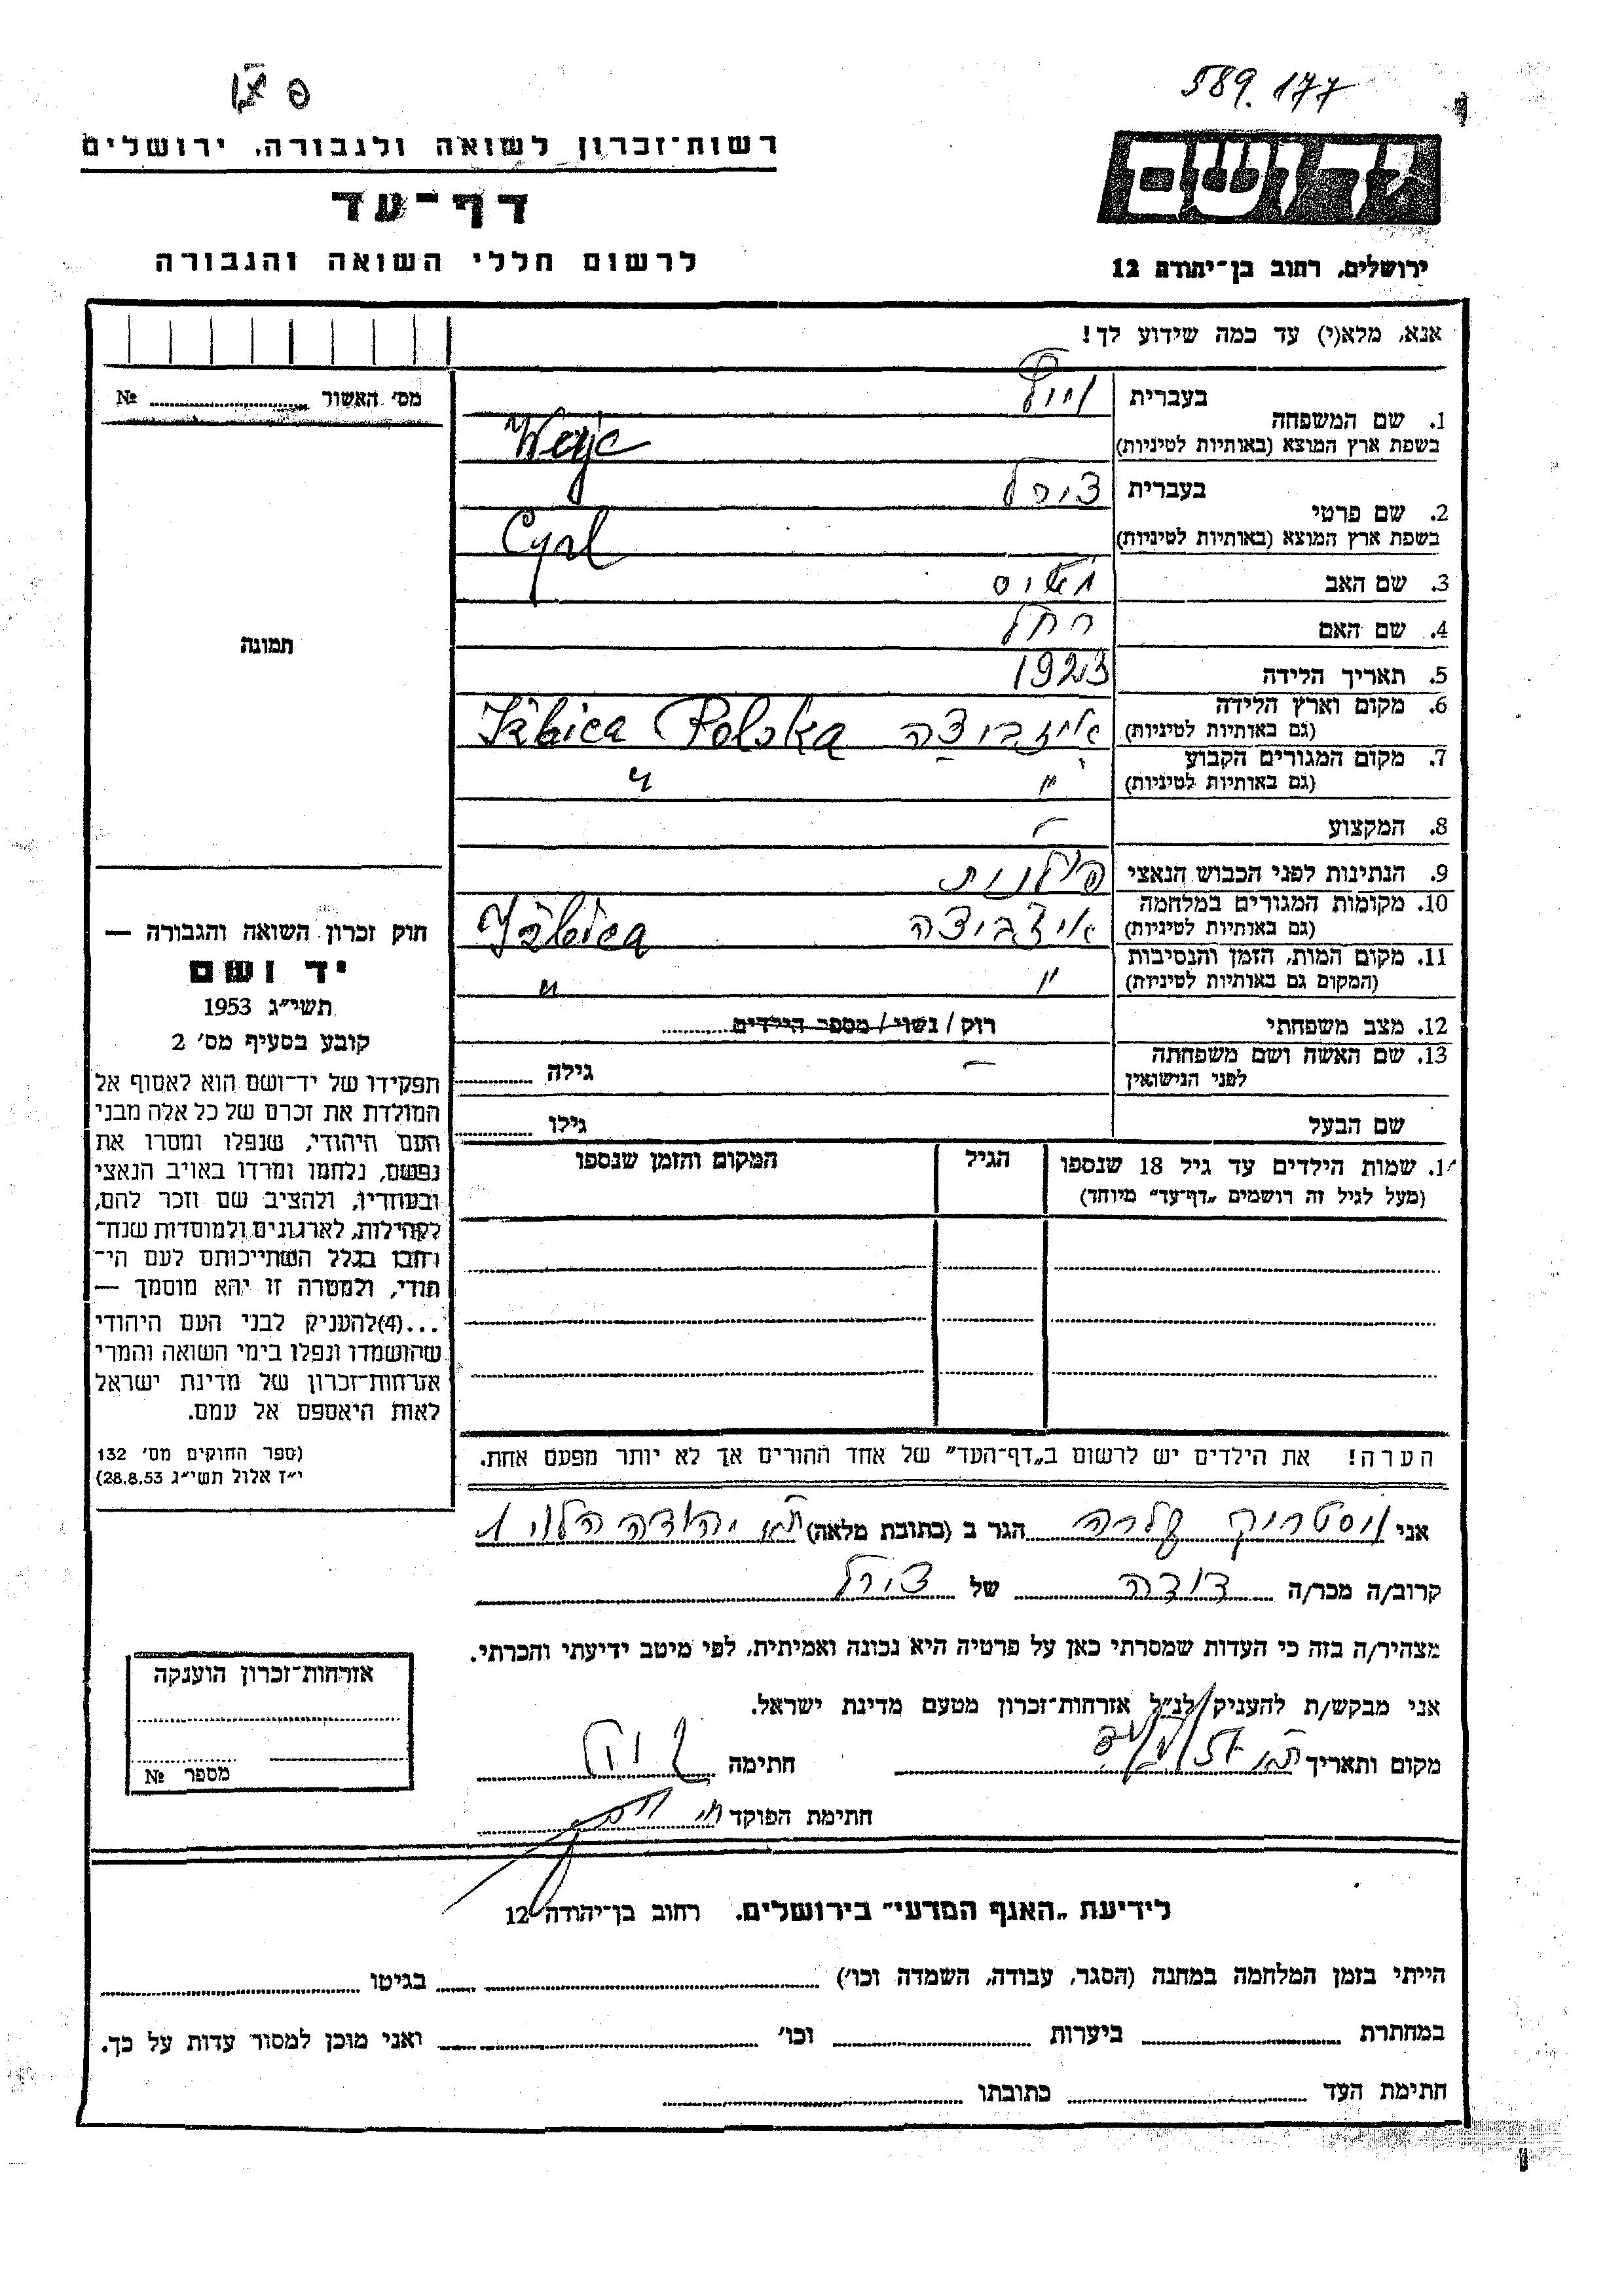 589.177
רשות־זכרון לשואה ולגבורה, ירושלים
דף־עד
לרשום חללי השואה והגבורה
ירושלים, רחוב בן־יהודה 12
אנא, מלא(י) עד כמה שידוע לך!
מס' האשור № ........
תמונה
1. שם המשפחה בעברית
בשפת ארץ המוצא (באותיות לטיניות)
2. שם פרטי בעברית צירל
בשפת ארץ המוצא (באותיות לטיניות) Cyrl
3. שם האב
4. שם האם רחל
5. תאריך הלידה 1923
6. מקום וארץ הלידה
(גם באותיות לטיניות) איזביצה Izbica Polska
7. מקום המגורים הקבוע
(גם באותיות לטיניות) " "
8. המקצוע —
9. הנתינות לפני הכבוש הנאצי פולנית
10. מקומות המגורים במלחמה
(גם באותיות לטיניות) איזביצה Izbica
11. מקום המות, הזמן והנסיבות
(המקום גם באותיות לטיניות) " "
12. מצב משפחתי רוק / נשוי / מספר הילדים ........
13. שם האשה ושם משפחתה
לפני הנישואין — גילה ........
שם הבעל גילו ........
14. שמות הילדים עד גיל 18 שנספו
(מעל לגיל זה רושמים „דף־עד" מיוחד)
הגיל
המקום והזמן שנספו
הערה! את הילדים יש לרשום ב„דף־העד" של אחד ההורים אך לא יותר מפעם אחת.
חוק זכרון השואה והגבורה —
יד ושם
תשי"ג 1953
קובע בסעיף מס' 2
תפקידו של יד־ושם הוא לאסוף אל
המולדת את זכרם של כל אלה מבני
העם היהודי, שנפלו ומסרו את
נפשם, נלחמו ומרדו באויב הנאצי
ובעוזריו, ולהציב שם וזכר להם,
לקהילות, לארגונים ולמוסדות שנח־
רחבו בגלל השתייכותם לעם הי־
הודי, ולמטרה זו יהא מוסמך —
...(4)להעניק לבני העם היהודי
שהושמדו ונפלו בימי השואה והמרי
אזרחות־זכרון של מדינת ישראל
לאות היאספם אל עמם.
(ספר החוקים מס' 132
י"ז אלול תשי"ג 28.8.53)
אני הגר ב (כתובת מלאה) יהודה הלוי
קרוב/ה מכר/ה דודה של צירל
מצהיר/ה בזה כי העדות שמסרתי כאן על פרטיה היא נכונה ואמיתית, לפי מיטב ידיעתי והכרתי.
אני מבקש/ת להעניק לנ"ל אזרחות־זכרון מטעם מדינת ישראל.
מקום ותאריך חתימה
חתימת הפוקד
אזרחות־זכרון הוענקה
מספר №
לידיעת „האגף המדעי" בירושלים, רחוב בן־יהודה 12
הייתי בזמן המלחמה במחנה (הסגר, עבודה, השמדה וכו') ........ בגיטו ........
במחתרת ........ ביערות ........ וכו' ........ ואני מוכן למסור עדות על כך.
חתימת העד ........ כתובתו ........